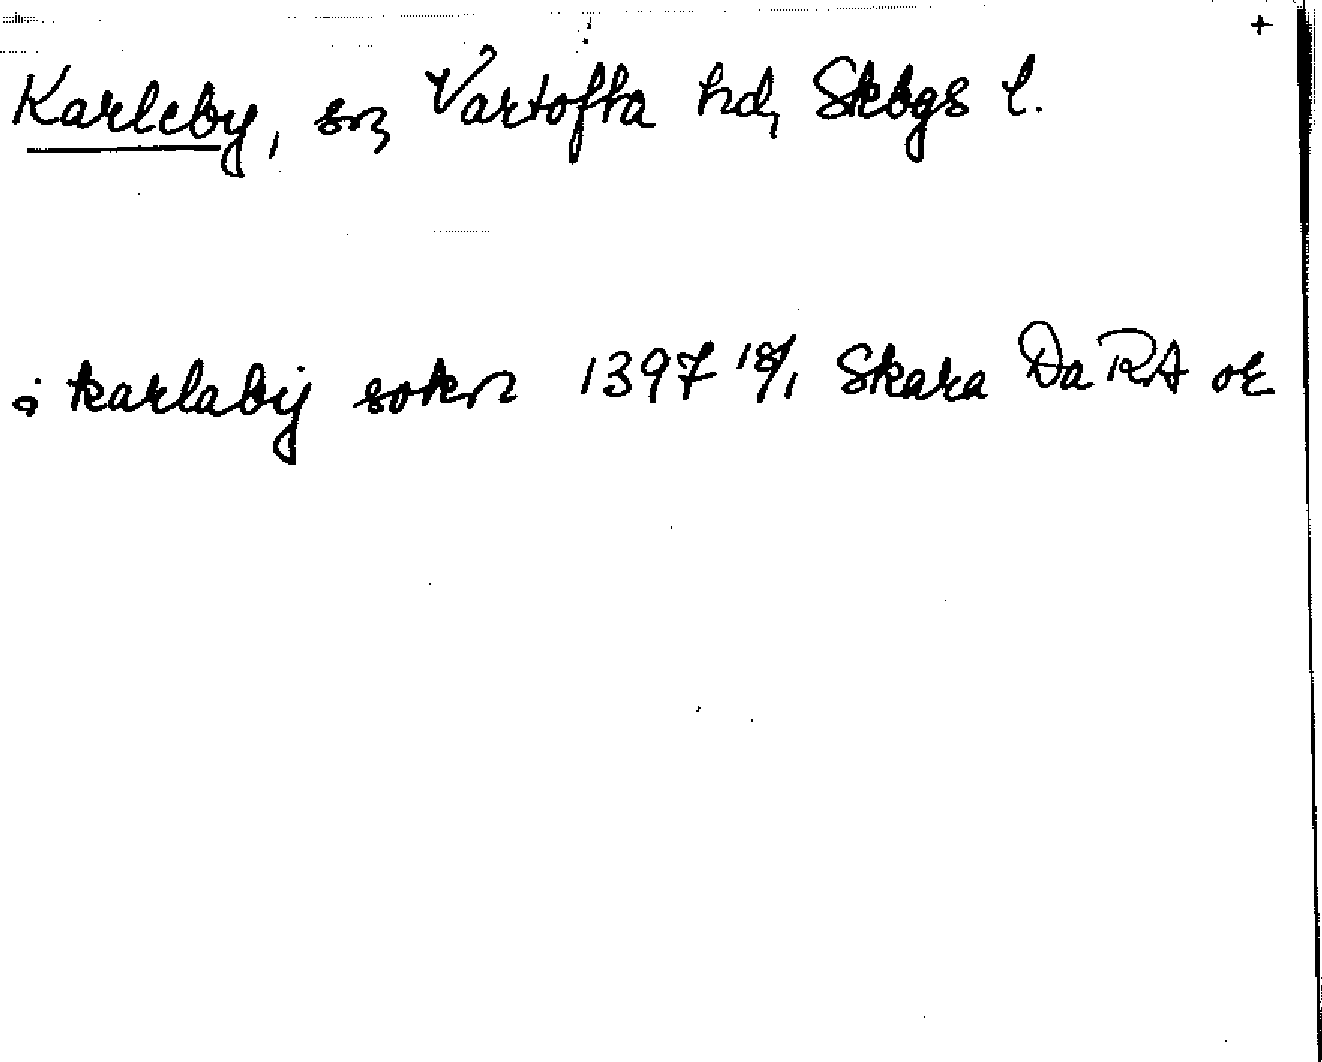 +
Karleby, sn, Vartofta hd, Skbgs l.
i karlabij sokn 1397 18/1 Skara Da RA or